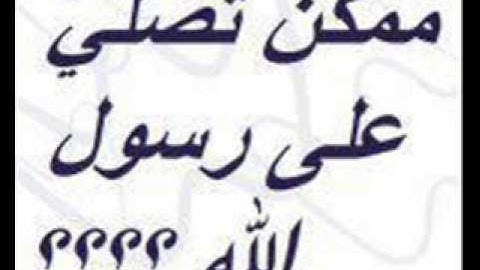 ممكن تصلي
على رسول
الله ؟؟؟؟